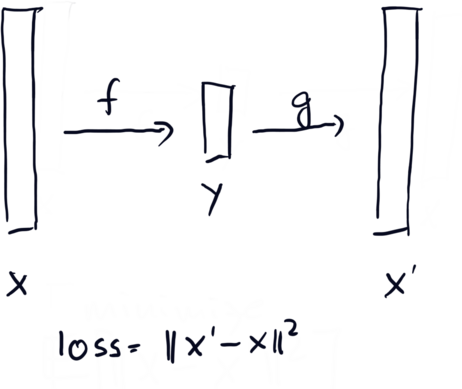 f
g
y
x
x'
loss = ||x' - x||²